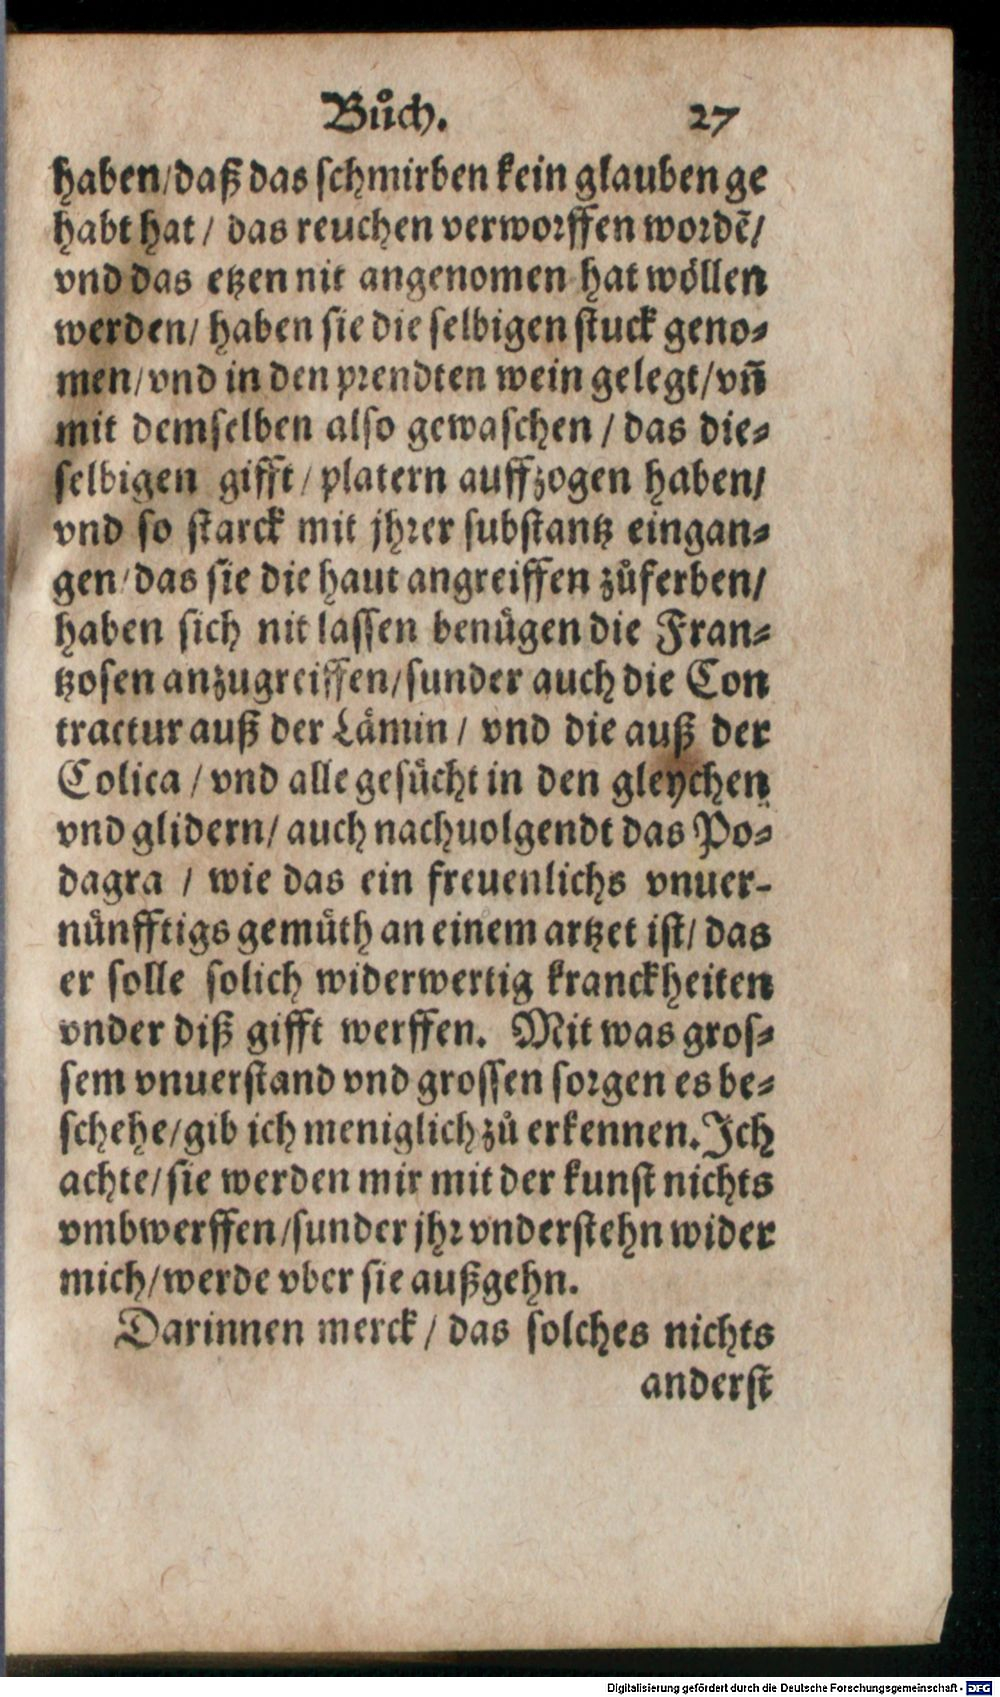 Bůch. 27
haben/daß das schmirben kein glauben ge
habt hat / das reuchen verworffen wordẽ/
vnd das etzen nit angenomen hat wöllen
werden/ haben sie die selbigen stuck geno-
men/vnd in den prendten wein gelegt/vñ
mit demselben also gewaschen / das die-
selbigen gifft/ platern auffzogen haben/
vnd so starck mit jhrer substantz eingan-
gen/das sie die haut angreiffen zůferben/
haben sich nit lassen benügen die Fran-
tzosen anzugreiffen/sunder auch die Con
tractur auß der Lämin / vnd die auß der
Colica / vnd alle gesücht in den gleychen
vnd glidern/ auch nachuolgendt das Po-
dagra / wie das ein freuenlichs vnuer-
nünfftigs gemüth an einem artzet ist/ das
er solle solich widerwertig kranckheiten
vnder diß gifft werffen. Mit was gros-
sem vnuerstand vnd grossen sorgen es be-
schehe/gib ich meniglich zů erkennen. Ich
achte/sie werden mir mit der kunst nichts
vmbwerffen/sunder jhr vnderstehn wider
mich/werde vber sie außgehn.
Darinnen merck / das solches nichts
anderst
Digitalisierung gefördert durch die Deutsche Forschungsgemeinschaft - DFG